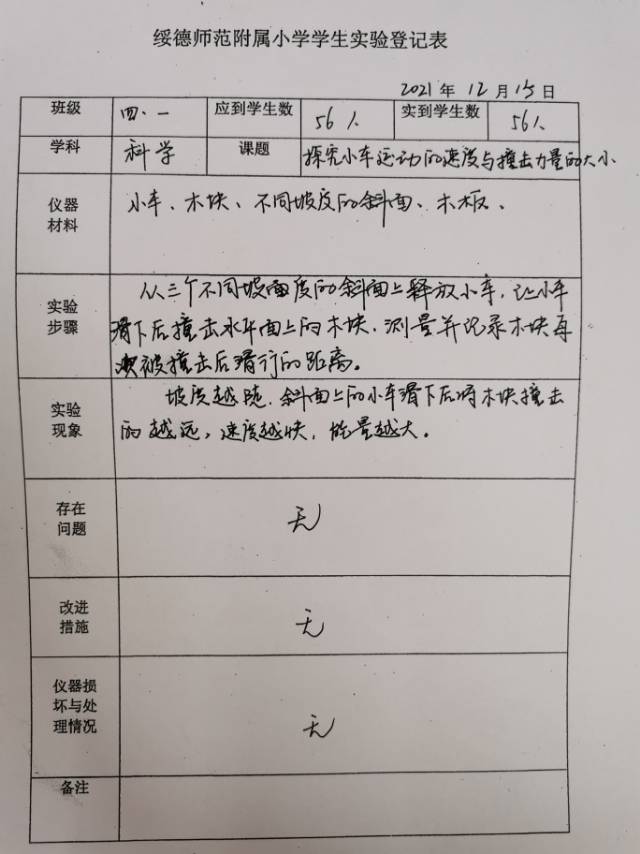 绥德师范附属小学学生实验登记表
2021年12月15日
班级 四.一 应到学生数 56人 实到学生数 56人
学科 科学 课题 探究小车运动的速度与撞击力量的大小
仪器材料 小车、木块、不同坡度的斜面、木板、
实验步骤 从三个不同坡面度的斜面上释放小车,让小车
滑下后撞击水平面上的木块.测量并记录木块每
次被撞击后滑行的距离。
实验现象 坡度越陡.斜面上的小车滑下后将木块撞击
的越远,速度越快,能量越大。
存在问题 无
改进措施 无
仪器损坏与处理情况 无
备注